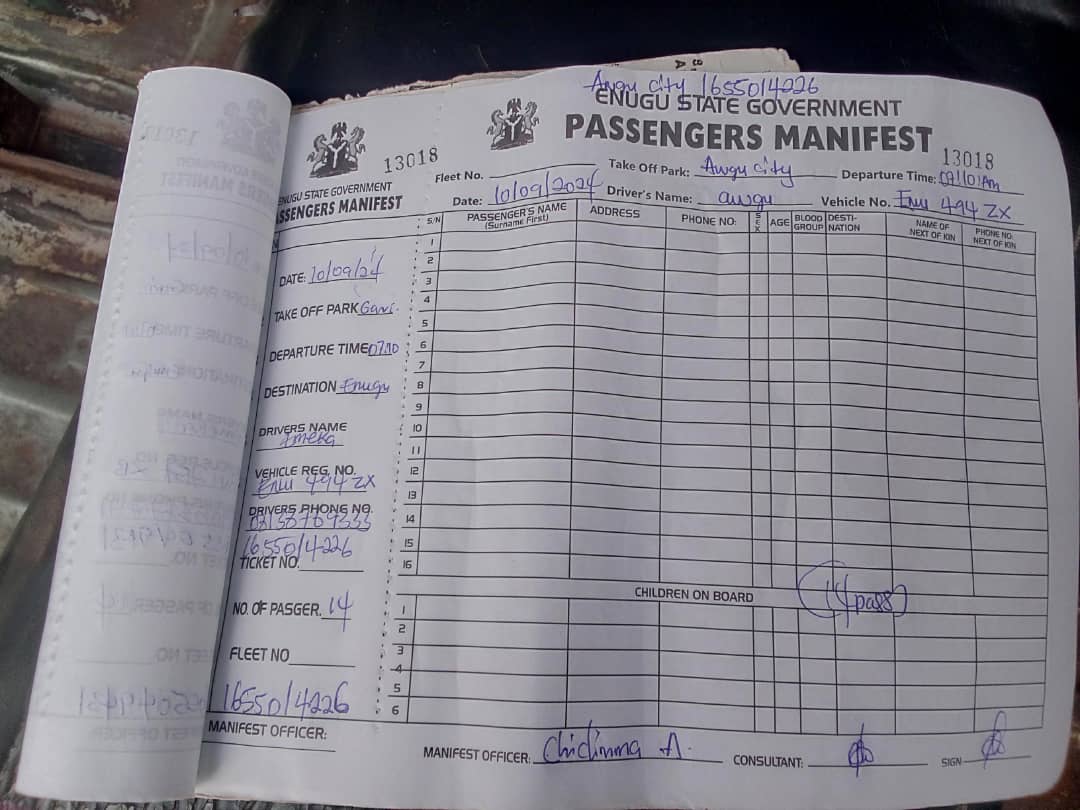 Awgu city 16550/4226
ENUGU STATE GOVERNMENT
PASSENGERS MANIFEST
13018
Fleet No.
Take Off Park: Awgu city
Departure Time:
Date: 10/09/2024
Driver's Name: awgu
Vehicle No. Enu 494 ZX
S/N
PASSENGER'S NAME
(Surname First)
ADDRESS
PHONE NO:
SEX
AGE
BLOOD GROUP
DESTI-NATION
NAME OF NEXT OF KIN
PHONE NO: NEXT OF KIN
1
2
3
4
5
6
7
8
9
10
11
12
13
14
15
16
CHILDREN ON BOARD
14 pass
1
2
3
4
5
6
MANIFEST OFFICER: Chidinma A.
CONSULTANT:
SIGN
13018
ENUGU STATE GOVERNMENT
PASSENGERS MANIFEST
DATE: 10/09/24
TAKE OFF PARK
DEPARTURE TIME 07:10
DESTINATION Enugu
DRIVERS NAME
Emeka
VEHICLE REG. NO.
Enu 494 ZX
DRIVERS PHONE NO.
16550/4226
TICKET NO.
NO. OF PASGER. 14
FLEET NO
16550/4226
MANIFEST OFFICER: